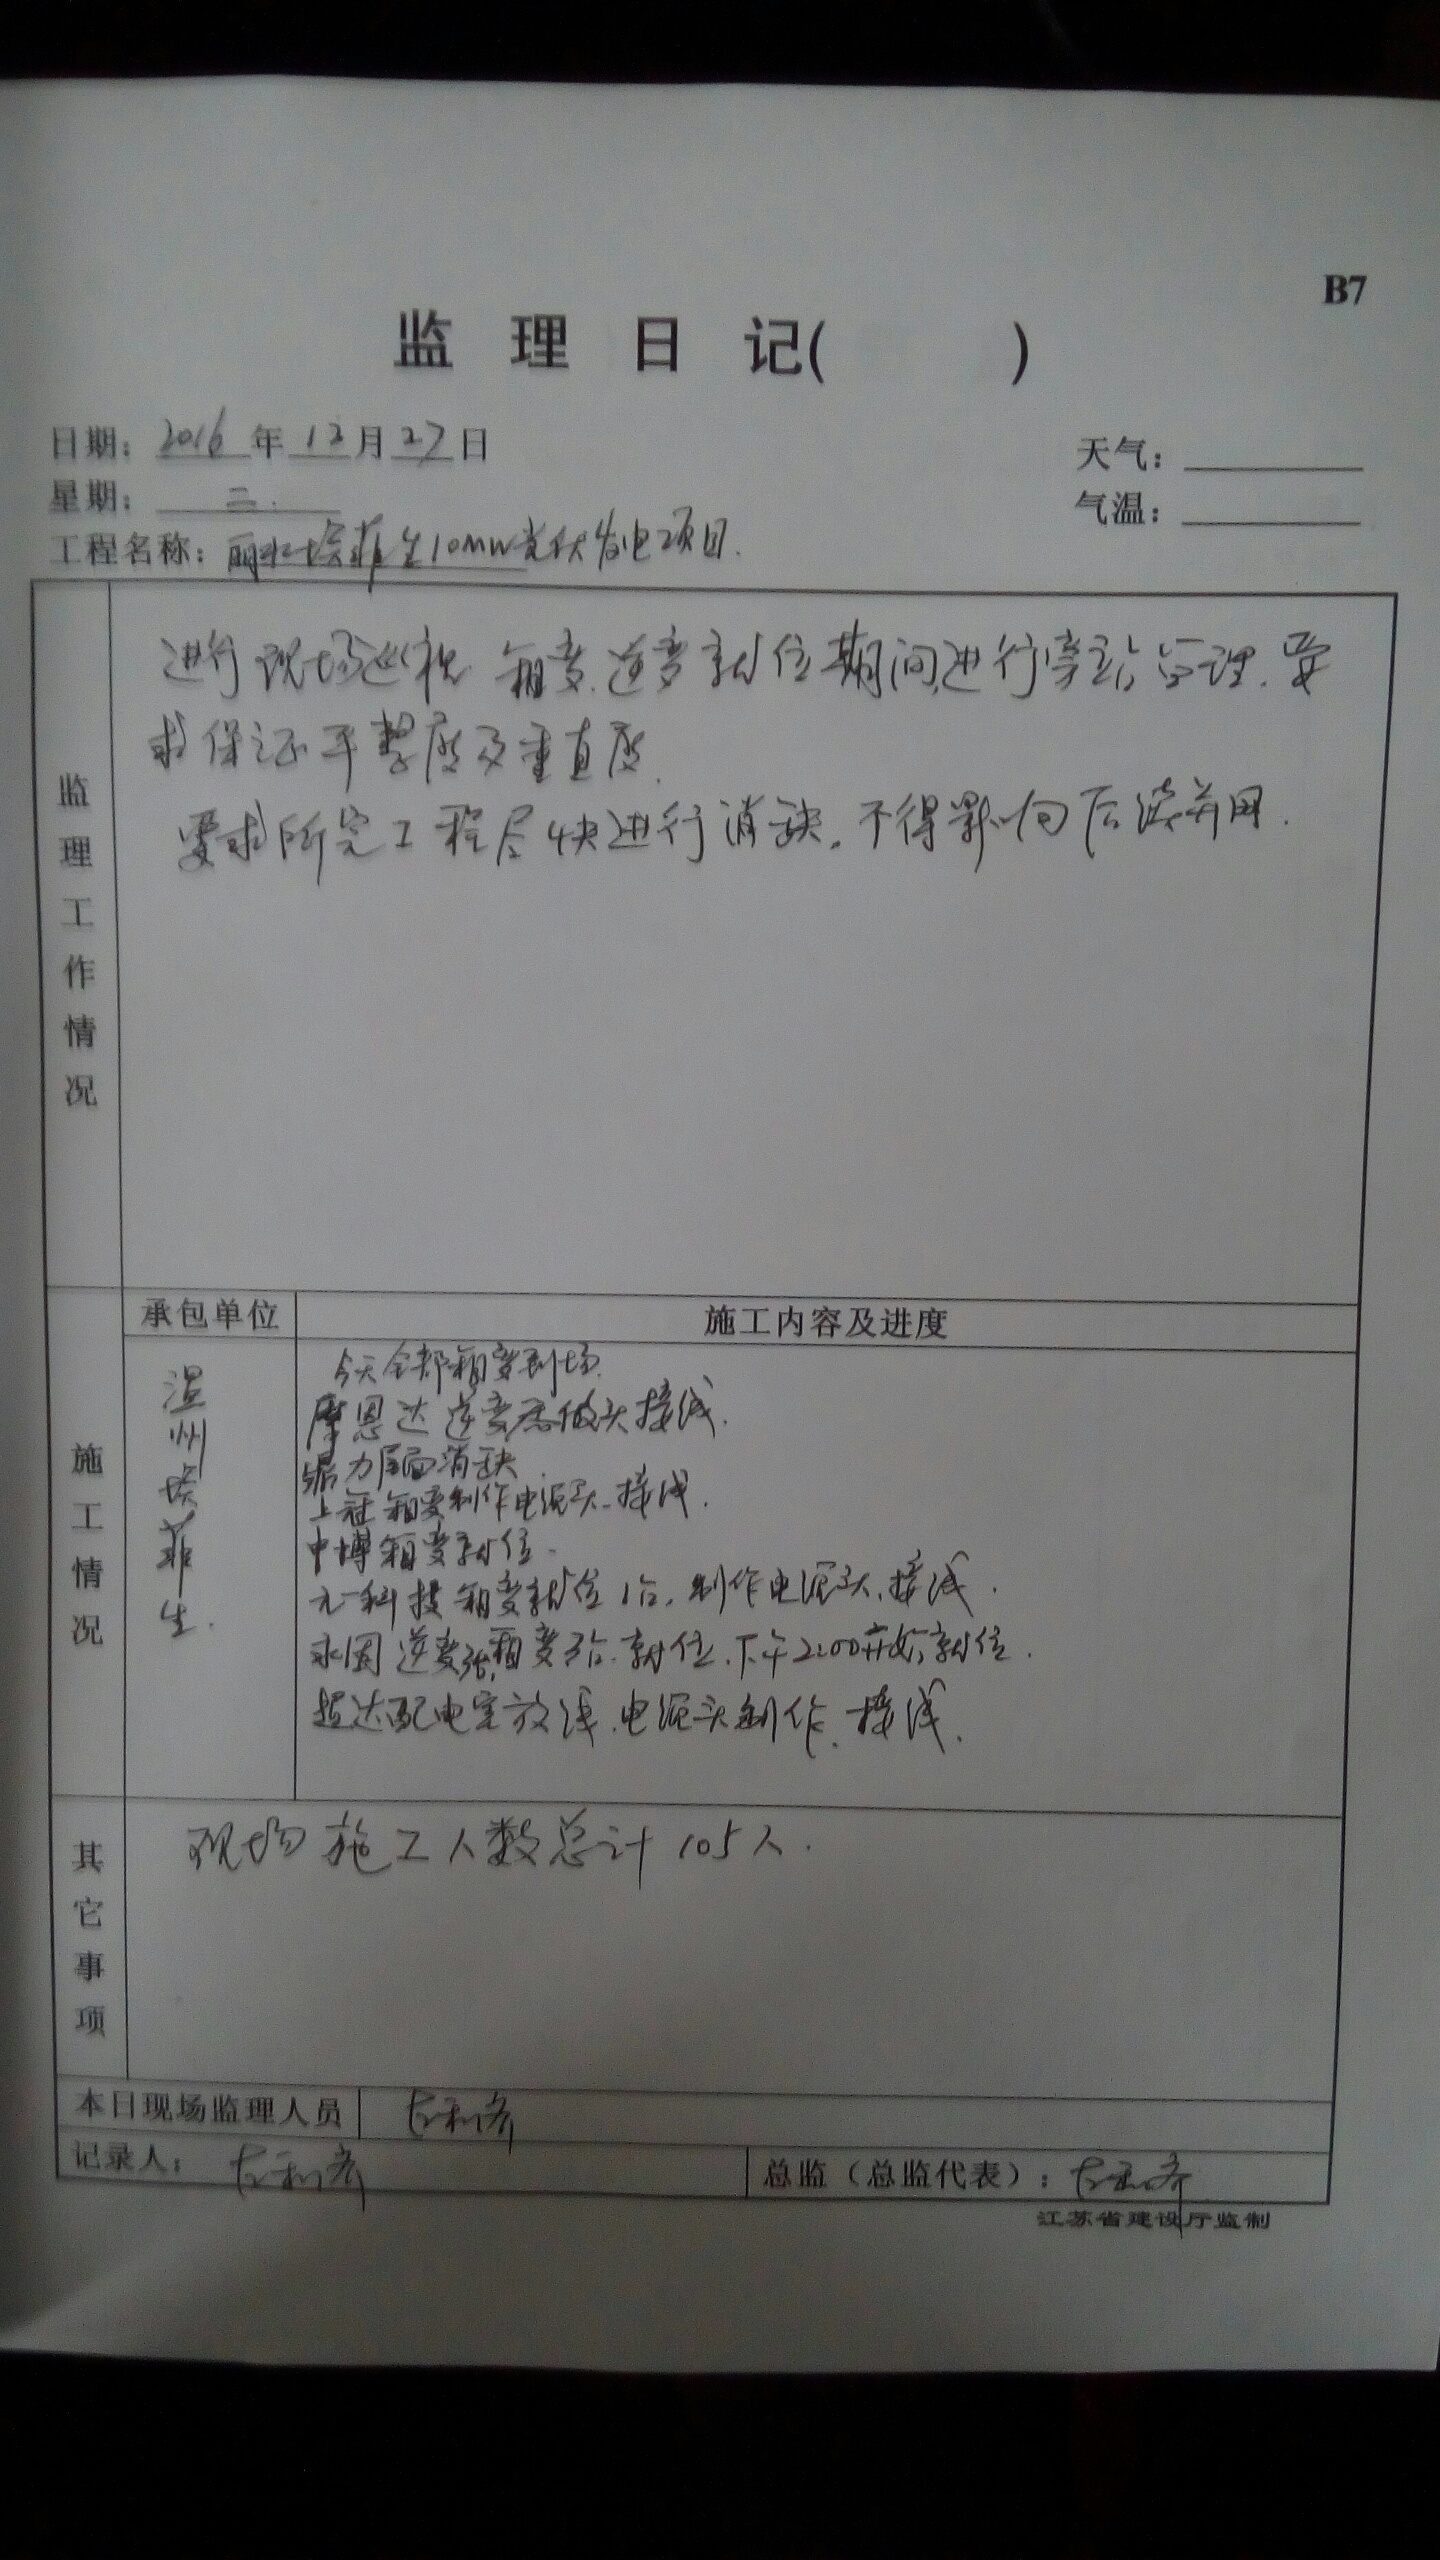 B7
监 理 日 记( )
日期：2016年12月27日
天气：
星期：二.
气温：
工程名称：丽水埃菲生10MW光伏发电项目.
监理工作情况
进行现场巡视 箱变、逆变就位期间,进行旁站监理.要
求保证平整度及垂直度.
要求所完工程尽快进行消缺,不得影响后续并网.
施工情况
承包单位
施工内容及进度
温州埃菲生.
今天全部箱变到场.
摩恩达逆变店做头接线.
鼎力屋面消缺
上冠箱变制作电源头、接线.
中博箱变就位.
元一科技箱变就位1台,制作电源头、接线.
永固逆变3台,箱变3台.就位.下午2:00开始就位.
超达配电室放线.电源头制作.接线.
其它事项
现场施工人数总计105人.
本日现场监理人员
记录人：
总监（总监代表）：
江苏省建设厅监制